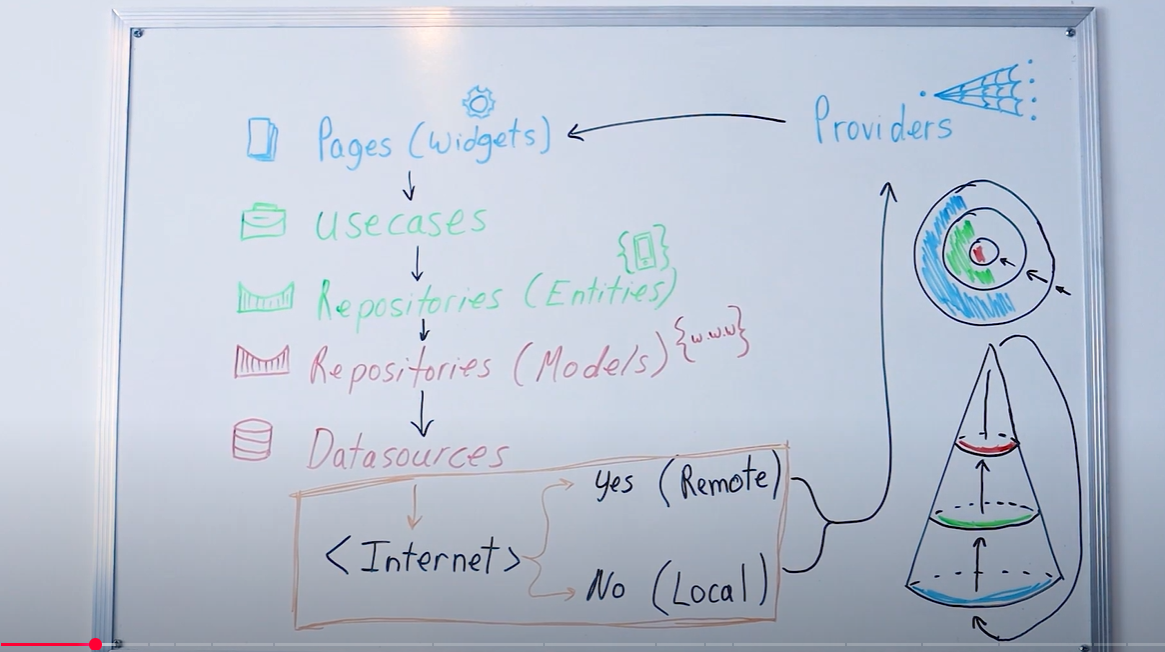 Pages (Widgets)
Providers
usecases
Repositories (Entities)
Repositories (Models) {w.w.w}
Datasources
Yes (Remote)
<Internet>
No (Local)